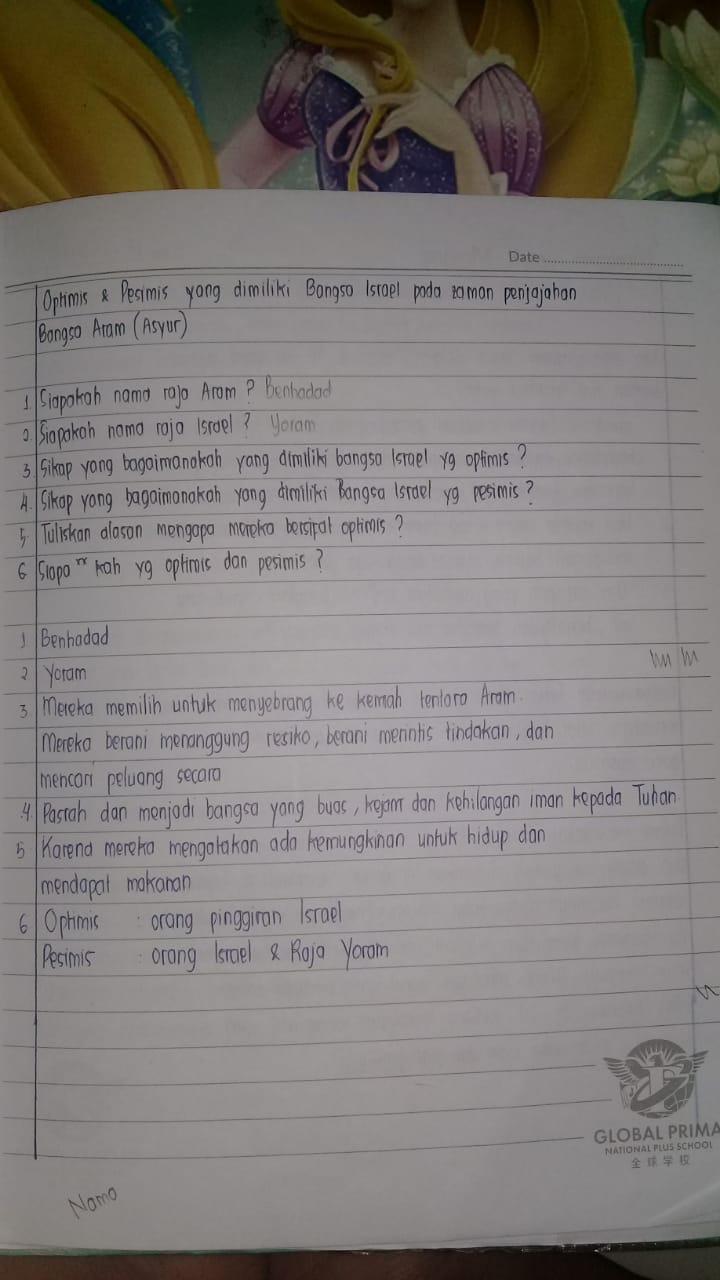 Date
Optimis & Pesimis yang dimiliki Bangsa Israel pada zaman penjajahan
Bangsa Aram (Asyur)
1. Siapakah nama raja Aram ? Benhadad
2. Siapakah nama raja Israel ? Yoram
3. Sikap yang bagaimanakah yang dimiliki bangsa Israel yg optimis ?
4. Sikap yang bagaimanakah yang dimiliki Bangsa Israel yg pesimis ?
5. Tuliskan alasan mengapa mereka bersipat optimis ?
6 Siapa kah yg optimis dan pesimis ?
1 Benhadad
2 Yoram
3 Mereka memilih untuk menyebrang ke kemah tentara Aram.
Mereka berani menanggung resiko, berani merintis tindakan, dan
mencari peluang secara
4. Pasrah dan menjadi bangsa yang buas, kejam dan kehilangan iman kepada Tuhan.
5 Karena mereka mengatakan ada kemungkinan untuk hidup dan
mendapat makanan
6 Optimis : orang pinggiran Israel
Pesimis : orang Israel & Raja Yoram
GLOBAL PRIMA
NATIONAL PLUS SCHOOL
全球学校
Nama